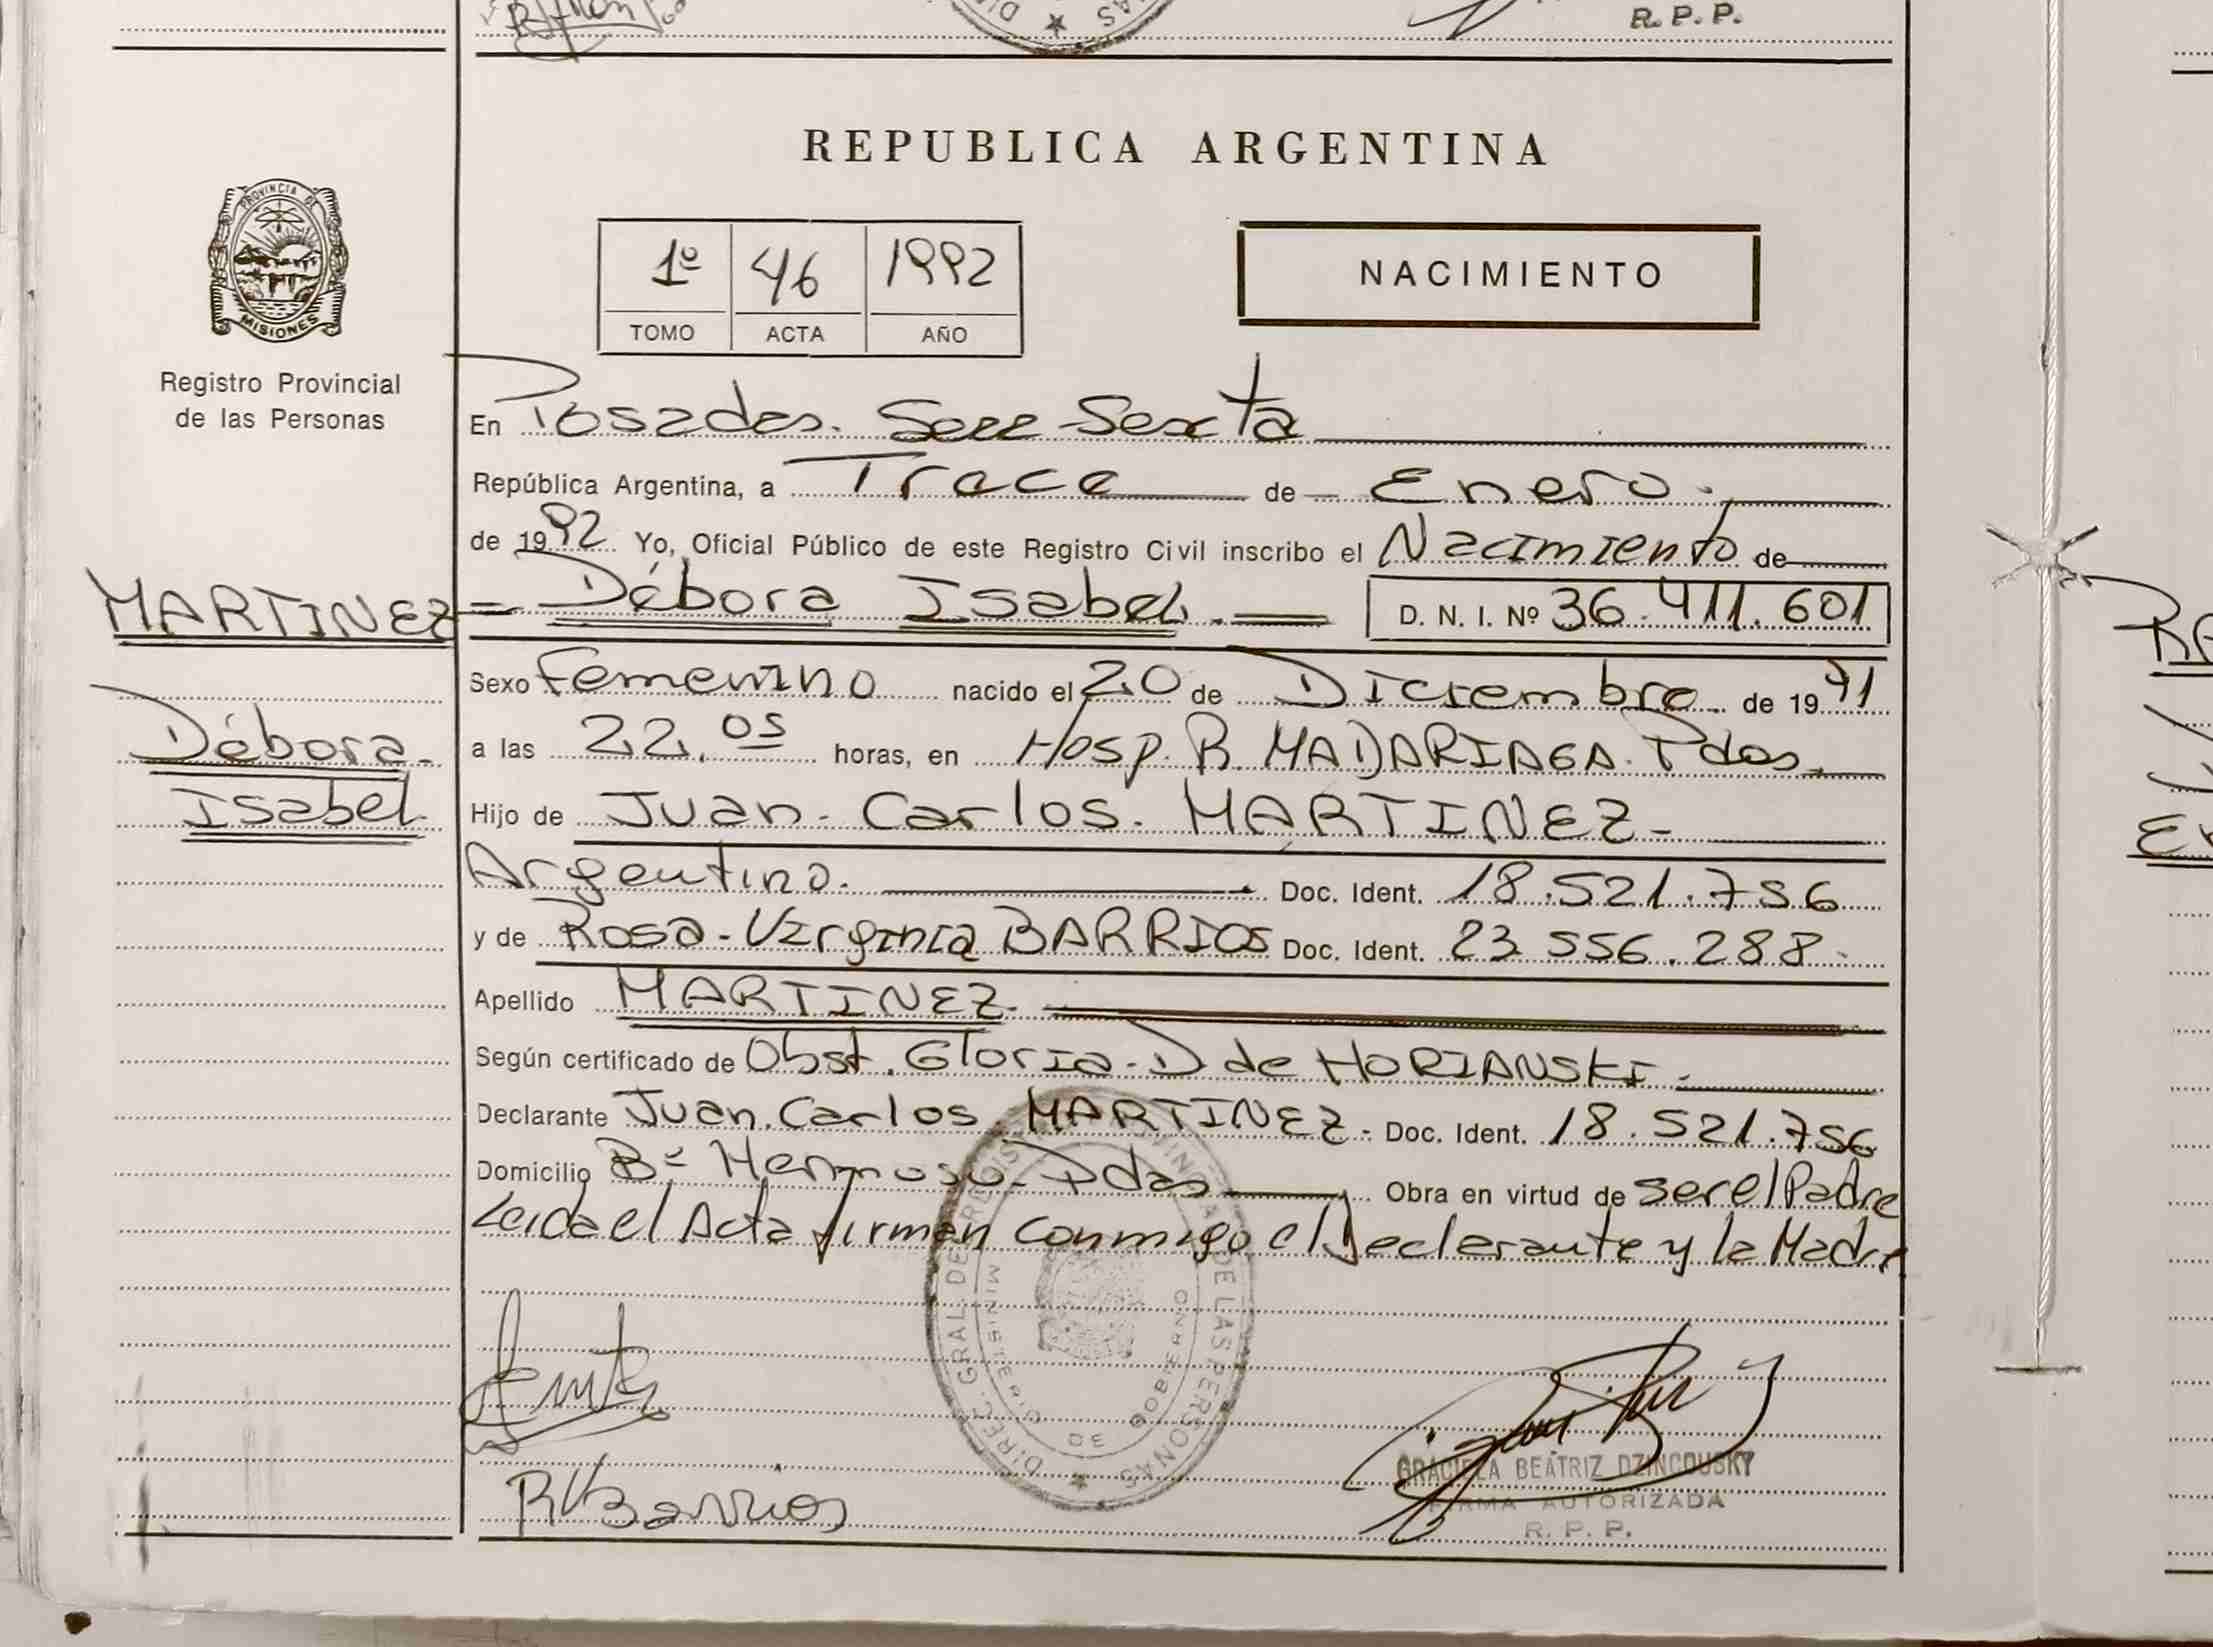 R. P. P.
REPUBLICA ARGENTINA
PROVINCIA DE
MISIONES
Registro Provincial
de las Personas
1º 46 1992
TOMO ACTA AÑO
NACIMIENTO
En Posadas. Secc Sexta
República Argentina, a Trece de Enero.
de 1992 Yo, Oficial Público de este Registro Civil inscribo el Nacimiento de
MARTINEZ = Débora Isabel. D. N. I. Nº 36.411.601
Débora.
Isabel.
Sexo Femenino nacido el 20 de Diciembre. de 1991
a las 22.05 horas, en Hosp. R. MADARIAGA. Pdas.
Hijo de Juan. Carlos. MARTINEZ-
Argentino. Doc. Ident. 18.521.756
y de Rosa-Virginia BARRIOS Doc. Ident. 23.556.288.
Apellido MARTINEZ.
Según certificado de Obst. Gloria. D de HORIANSKI-
Declarante Juan. Carlos. MARTINEZ- Doc. Ident. 18.521.756
Domicilio Bº Hermoso-Pdas Obra en virtud de ser el Padre
Leida el Acta firman conmigo el Declarante y la Madre
DIREC. GRAL. DE REGISTRO PROVINCIAL DE LAS PERSONAS
MINISTERIO DE GOBIERNO
RVBarrios
GRACIELA BEATRIZ DZINCOUSKY
FIRMA AUTORIZADA
R. P. P.